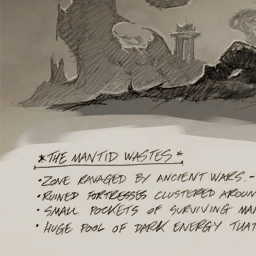 *THE MANTID WASTES*
• ZONE RAVAGED BY ANCIENT WARS.-
• RUINED FORTRESSES CLUSTERED AROUN
• SMALL POCKETS OF SURVIVING MAN
• HUGE POOL OF DARK ENERGY THAT